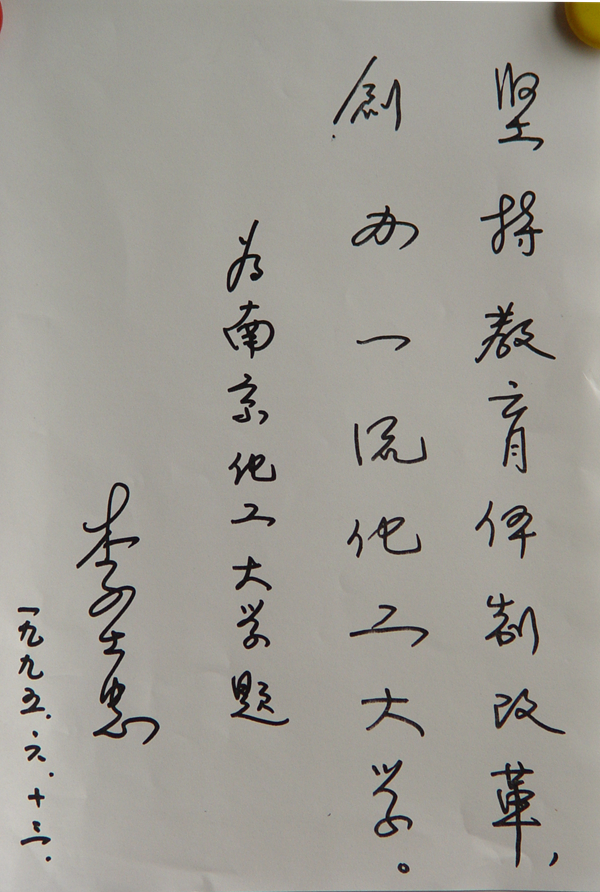 坚持教育体制改革，
创办一流化工大学。
为南京化工大学题
李士忠
一九九五.六.十三.